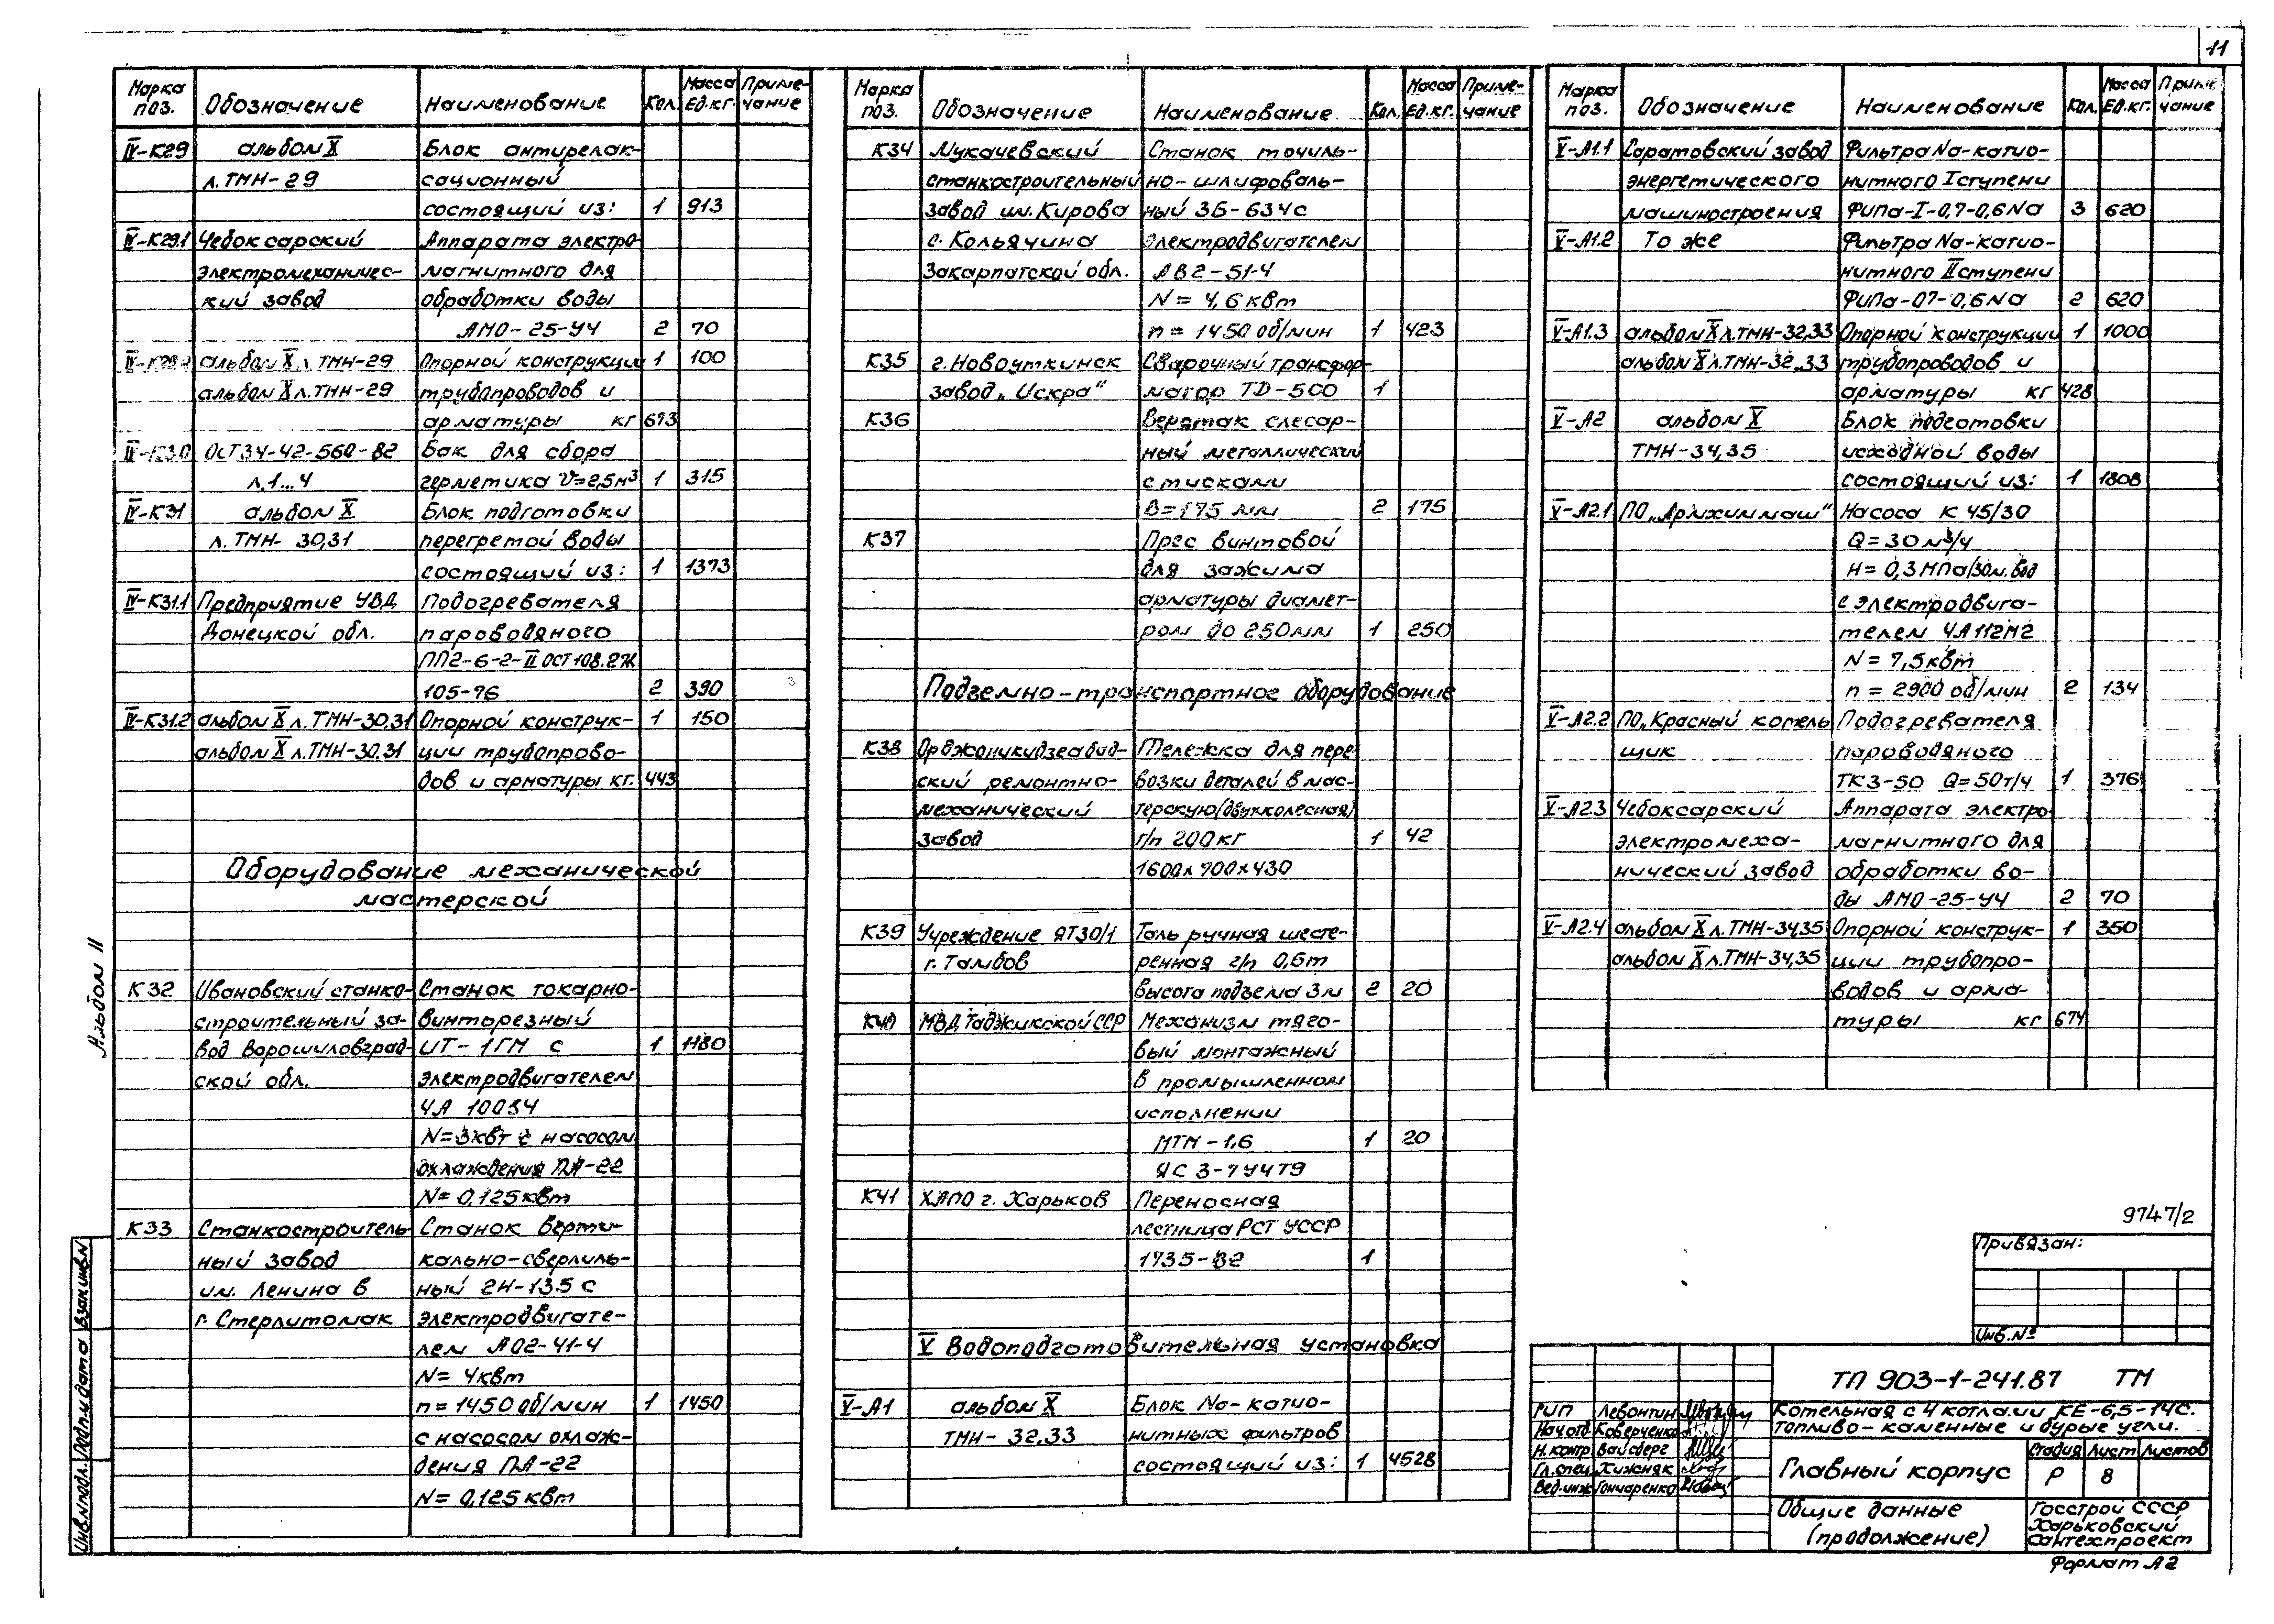 11
Марка поз. Обозначение Наименование Кол. Масса Ед.кг. Примечание
IV-К29 альбом X Блок антирелак-
л.ТМН-29 сационный
состоящий из: 1 913
IV-К29.1 Чебоксарский Аппарата электро-
электромеханичес- магнитного для
кий завод обработки воды
АМО-25-У4 2 70
IV-К29.2 альбом X л.ТМН-29 Опорной конструкции 1 100
альбом X л.ТМН-29 трубопроводов и
арматуры кг 673
IV-К30 ОСТ34-42-560-82 Бак для сбора
л.1...4 герметика V=2,5м³ 1 315
IV-К31 альбом X Блок подготовки
л.ТМН-30,31 перегретой воды
состоящий из: 1 1373
IV-К31.1 Предприятие УВД Подогревателя
Донецкой обл. пароводяного
ПП2-6-2-II ОСТ108.271
105-76 2 390
IV-К31.2 альбом X л.ТМН-30,31 Опорной конструк- 1 150
альбом X л.ТМН-30,31 ции трубопрово-
дов и арматуры кг. 443
Оборудование механической
мастерской
К32 Ивановский станко- Станок токарно-
строительный за- винторезный
вод Ворошиловград- ИТ-1ГМ с 1 1180
ской обл. электродвигателем
4А 100S4
N=3квт с насосом
охлаждения ПА-22
N=0,125квт
К33 Станкостроитель Станок верти-
ный завод кально-сверлиль-
им. Ленина в ный 2Н-135 с
г. Стерлитомак электродвигате-
лем АО2-41-4
N=4квт
n=1450 об/мин 1 1450
с насосом охлаж-
дения ПА-22
N=0,125квт
Марка поз. Обозначение Наименование Кол. Масса Ед.кг. Примечание
К34 Мукачевский Станок точиль-
станкостроительный но-шлифоваль-
завод им. Кирова ный 3Б-634с
с. Кольячино электродвигателем
Закарпатской обл. АВ2-51-4
N=4,6квт
n=1450 об/мин 1 423
К35 г.Новоуткинск Сварочный трансфор-
завод „Искра" матор ТД-500 1
К36 Верстак слесар-
ный металлический
с тисками
В=175 мм 2 175
К37 Прес винтовой
для зажима
арматуры диамет-
ром до 250мм 1 250
Подъемно-транспортное оборудование
К38 Орджоникидзеабад- Тележка для пере
ский ремонтно- возки деталей в мас-
механический терскую/двухколесная/
завод г/п 200кг 1 42
1600х900х430
К39 Учреждение ЯТ30/1 Таль ручная шесте-
г. Тамбов ренная г/п 0,5т
высота подъема 3м 2 20
К40 МВД Таджикской ССР Механизм тяго-
вый монтажный
в промышленном
исполнении
МТМ-1,6 1 20
К41 ХАПО г. Харьков Переносная
лестница РСТ УССР
1735-82 1
V Водоподготовительная установка
V-А1 альбом X Блок Na-катио-
ТМН-32,33 нитных фильтров
состоящий из: 1 4528
Марка поз. Обозначение Наименование Кол. Масса Ед.кг.
V-А1.1 Саратовский завод Фильтра Na-катио-
энергетического нитного I ступени
машиностроения ФИПа-I-0,7-0,6Na 3 620
V-А1.2 То же Фильтра Na-катио-
нитного II ступени
ФИПа-07-0,6Na 2 620
V-А1.3 альбом X л.ТМН-32,33 Опорной конструкции 1 1000
альбом X л.ТМН-32,33 трубопроводов и
арматуры кг 428
V-А2 альбом X Блок подготовки
ТМН-34,35 исходной воды
состоящий из: 1 1808
V-А2.1 ПО „Армхиммаш" Насоса К 45/30
Q=30м³/ч
Н=0,3МПа/30м.вод
с электродвига-
телем 4А112М2
N=7,5квт
n=2900 об/мин 2 134
V-А2.2 ПО „Красный котель Подогревателя
щик пароводяного
ТКЗ-50 Q=50т/ч 1 376
V-А2.3 Чебоксарский Аппарата электро-
электромеха- магнитного для
нический завод обработки во-
ды АМО-25-У4 2 70
V-А2.4 альбом X л.ТМН-34,35 Опорной конструк- 1 350
альбом X л.ТМН-34,35 ции трубопро-
водов и арма-
туры кг 674
Альбом II
Инв.№подл. Подп.и дата Взам.инв.№
9747/2
Привязан:
Инв.№
ТП 903-1-241.87 ТМ
ГИП Левонтин
Нач.отд. Коверченко
Н.контр. Вайсберг
Гл.спец. Хижняк
Вед.инж. Гончаренко
Котельная с 4 котлами КЕ-6,5-14С.
Топливо-каменные и бурые угли.
Главный корпус
Стадия Лист Листов
Р 8
Общие данные
(продолжение)
Госстрой СССР
Харьковский
Сантехпроект
Формат А2